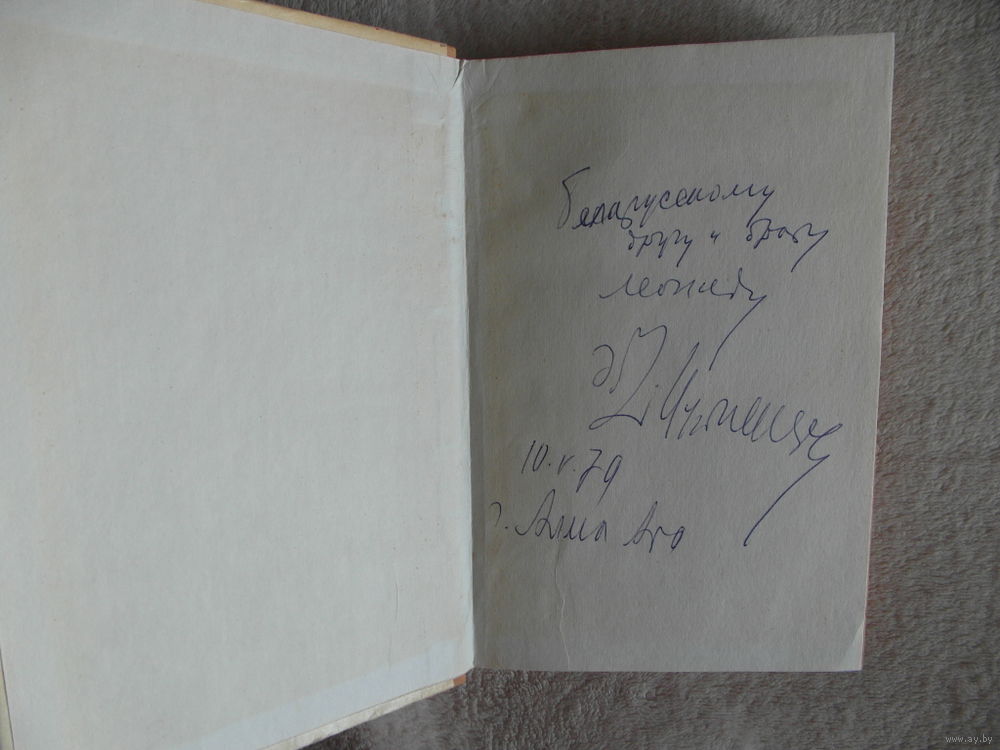 Беларусскому
другу и брату
Леониду
10.V.79
г. Алма Ата
www.ay.by